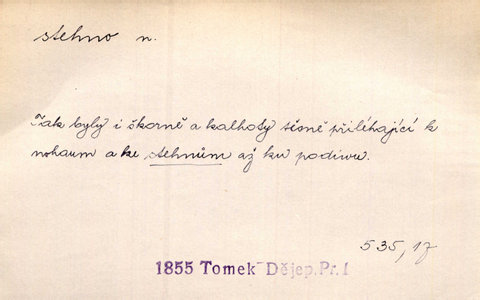 stehno n.
Tak byly i škorně a kalhoty těsně přiléhající k
nohaum a ke stehnům až ku podivu.
535, 17
1855 Tomek Dějep. Pr. I